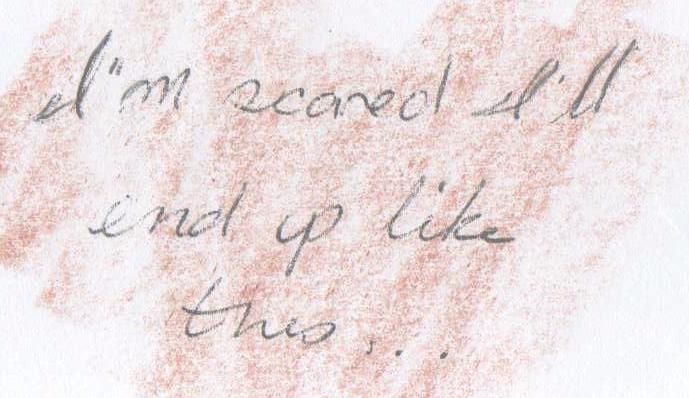 I'm scared I'll
end up like
this...